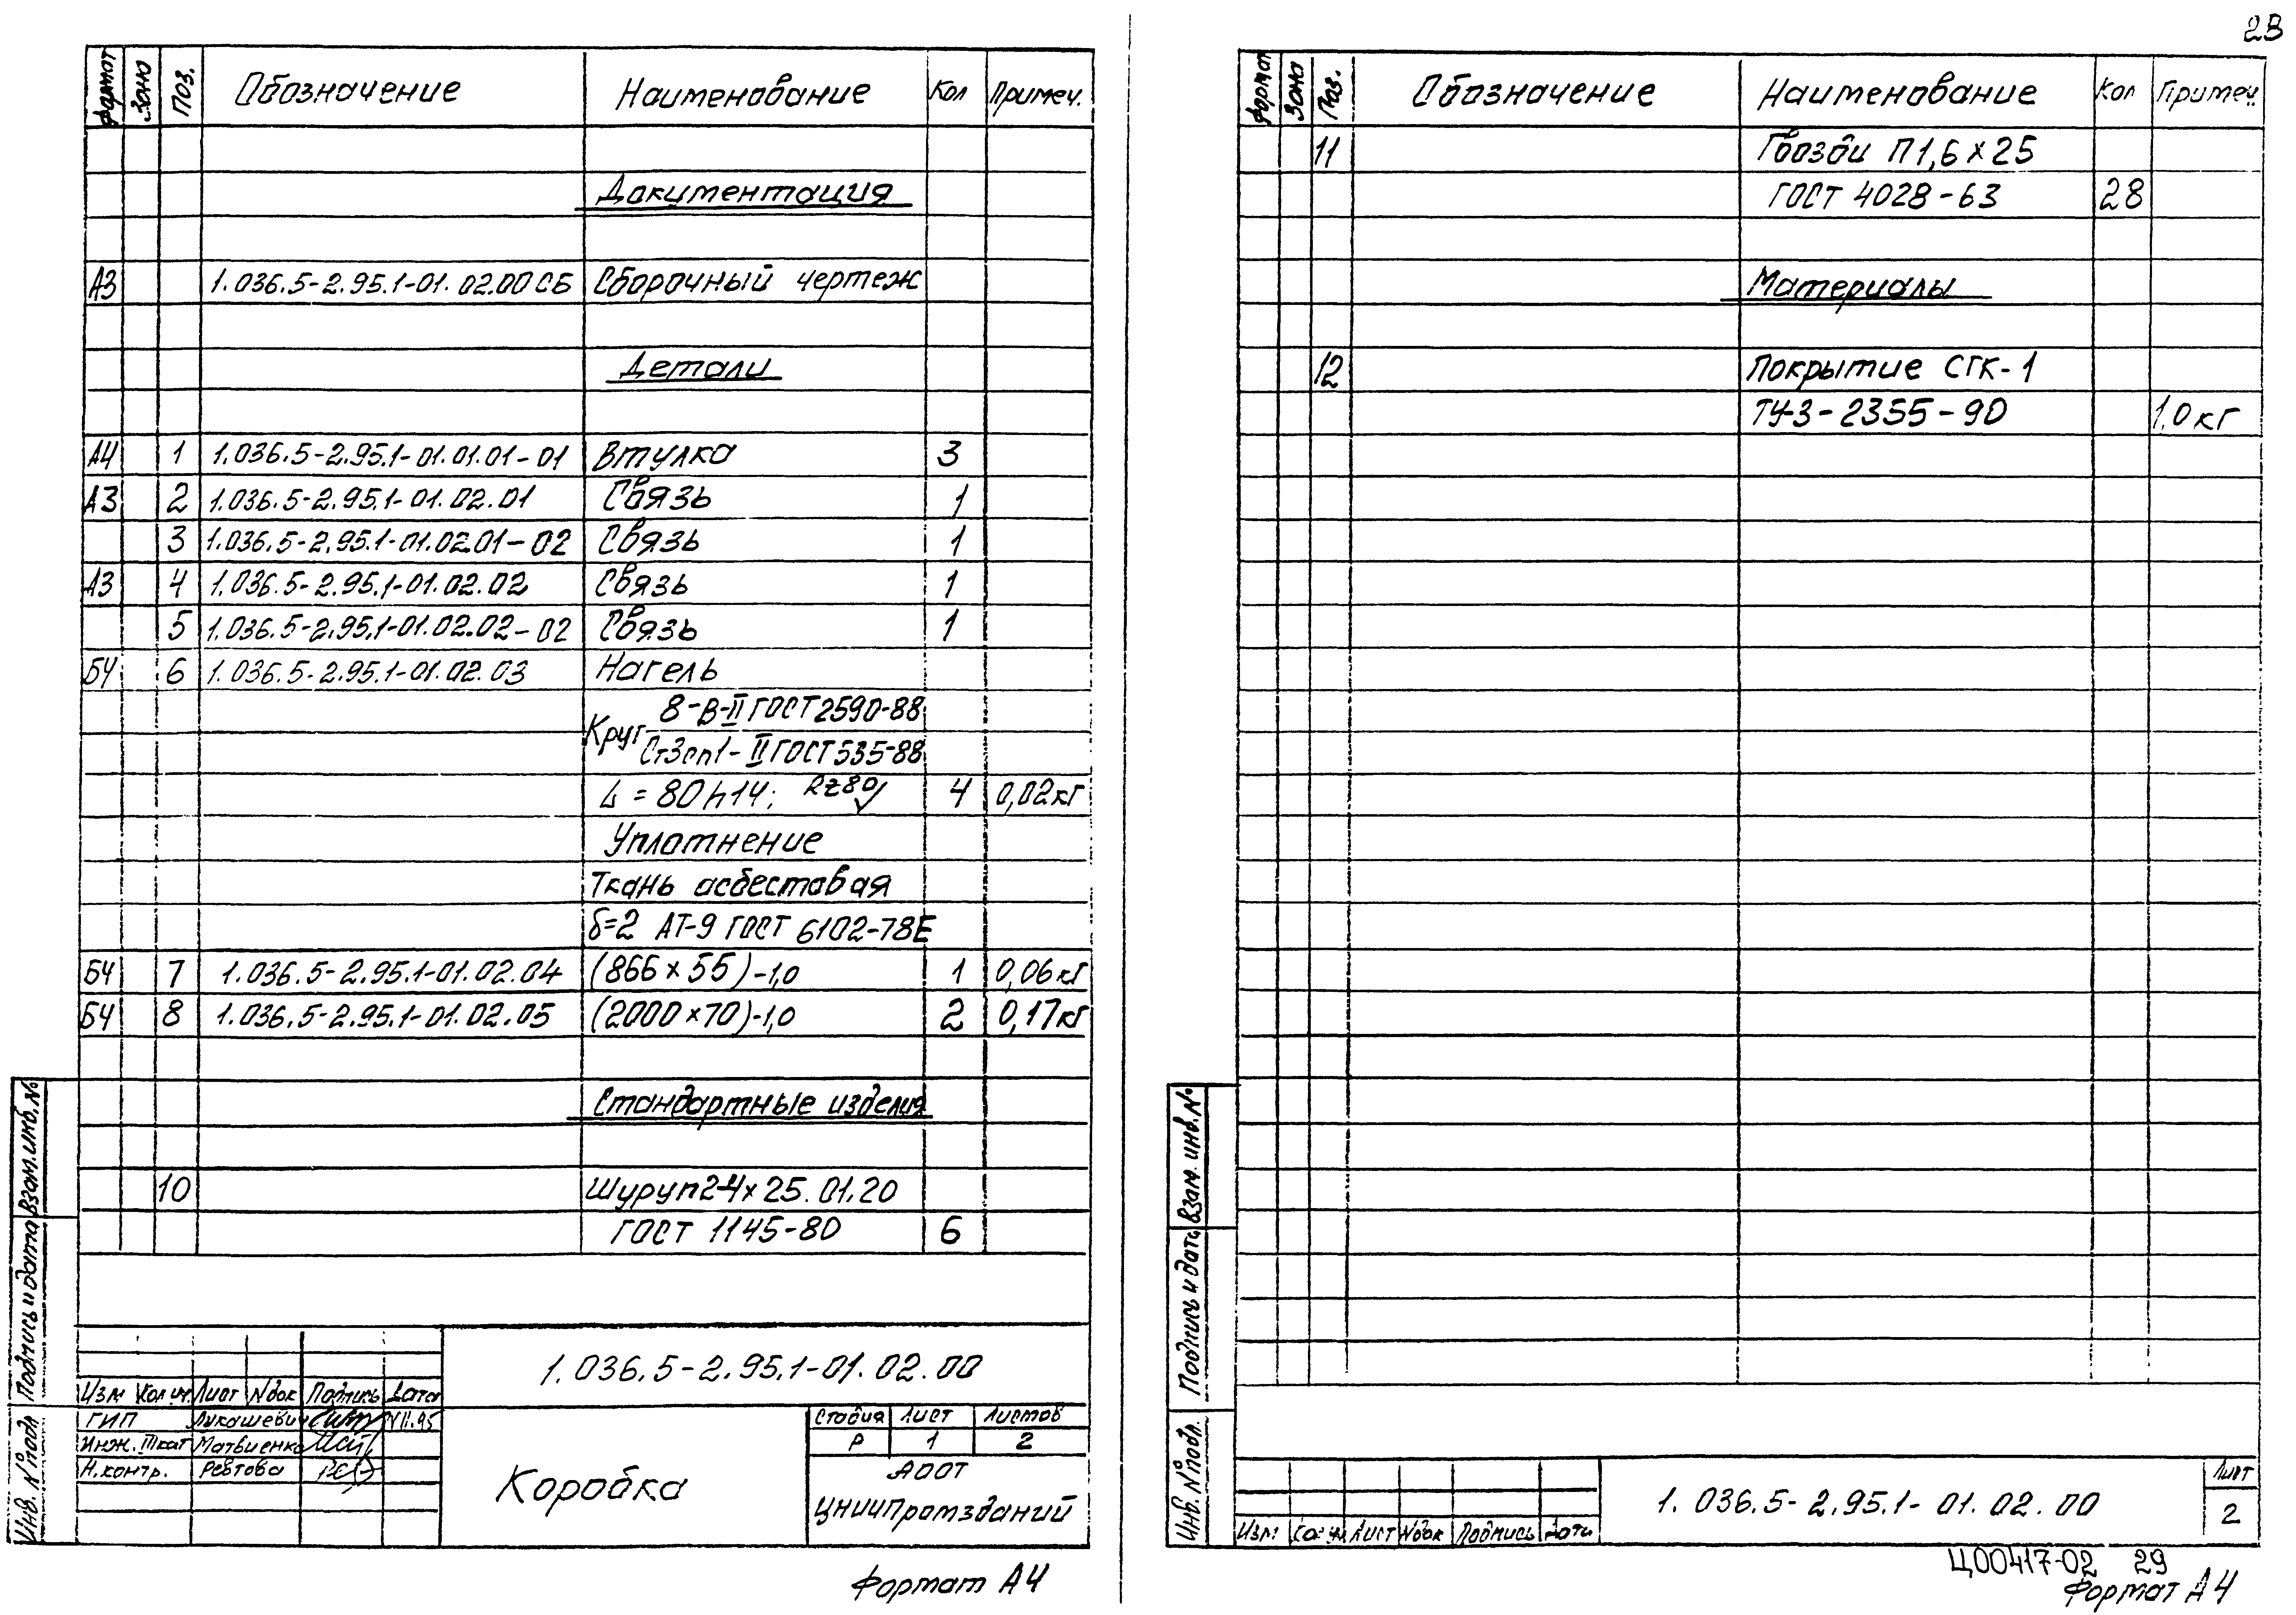 28
Формат Зона Поз. Обозначение Наименование Кол Примеч.
Документация
А3 1.036.5-2.95.1-01.02.00 СБ Сборочный чертеж
Детали
А4 1 1.036.5-2.95.1-01.01.01-01 Втулка 3
А3 2 1.036.5-2.95.1-01.02.01 Связь 1
3 1.036.5-2.95.1-01.02.01-02 Связь 1
А3 4 1.036.5-2.95.1-01.02.02 Связь 1
5 1.036.5-2.95.1-01.02.02-02 Связь 1
БЧ 6 1.036.5-2.95.1-01.02.03 Нагель
8-В-II ГОСТ 2590-88
Круг
Ст3сп1-II ГОСТ 535-88
L = 80 h14; Rz80 4 0,02кг
Уплотнение
Ткань асбестовая
δ=2 АТ-9 ГОСТ 6102-78Е
БЧ 7 1.036.5-2.95.1-01.02.04 (866×55)-1,0 1 0,06кг
БЧ 8 1.036.5-2.95.1-01.02.05 (2000×70)-1,0 2 0,17кг
Стандартные изделия
10 Шуруп 2-4×25.01.20
ГОСТ 1145-80 6
Инв. № подл. Подпись и дата Взам. инв. №
1.036.5-2.95.1-01.02.00
Изм Кол.уч Лист Nдок Подпись Дата
ГИП Лукашевич VII.95
Инж. Iкат Матвиенко
Н.контр. Ревтова
Коробка
Стадия Лист Листов
Р 1 2
АООТ
ЦНИИпромзданий
Формат А4
Формат Зона Поз. Обозначение Наименование Кол Примеч.
11 Гвозди П1,6×25
ГОСТ 4028-63 28
Материалы
12 Покрытие СГК-1
ТУ3-2355-90 1,0 кг
Инв. № подл. Подпись и дата Взам. инв. №
Изм Кол.уч Лист Nдок Подпись Дата
1.036.5-2.95.1-01.02.00
Лист
2
Ц00417-02 29
Формат А4